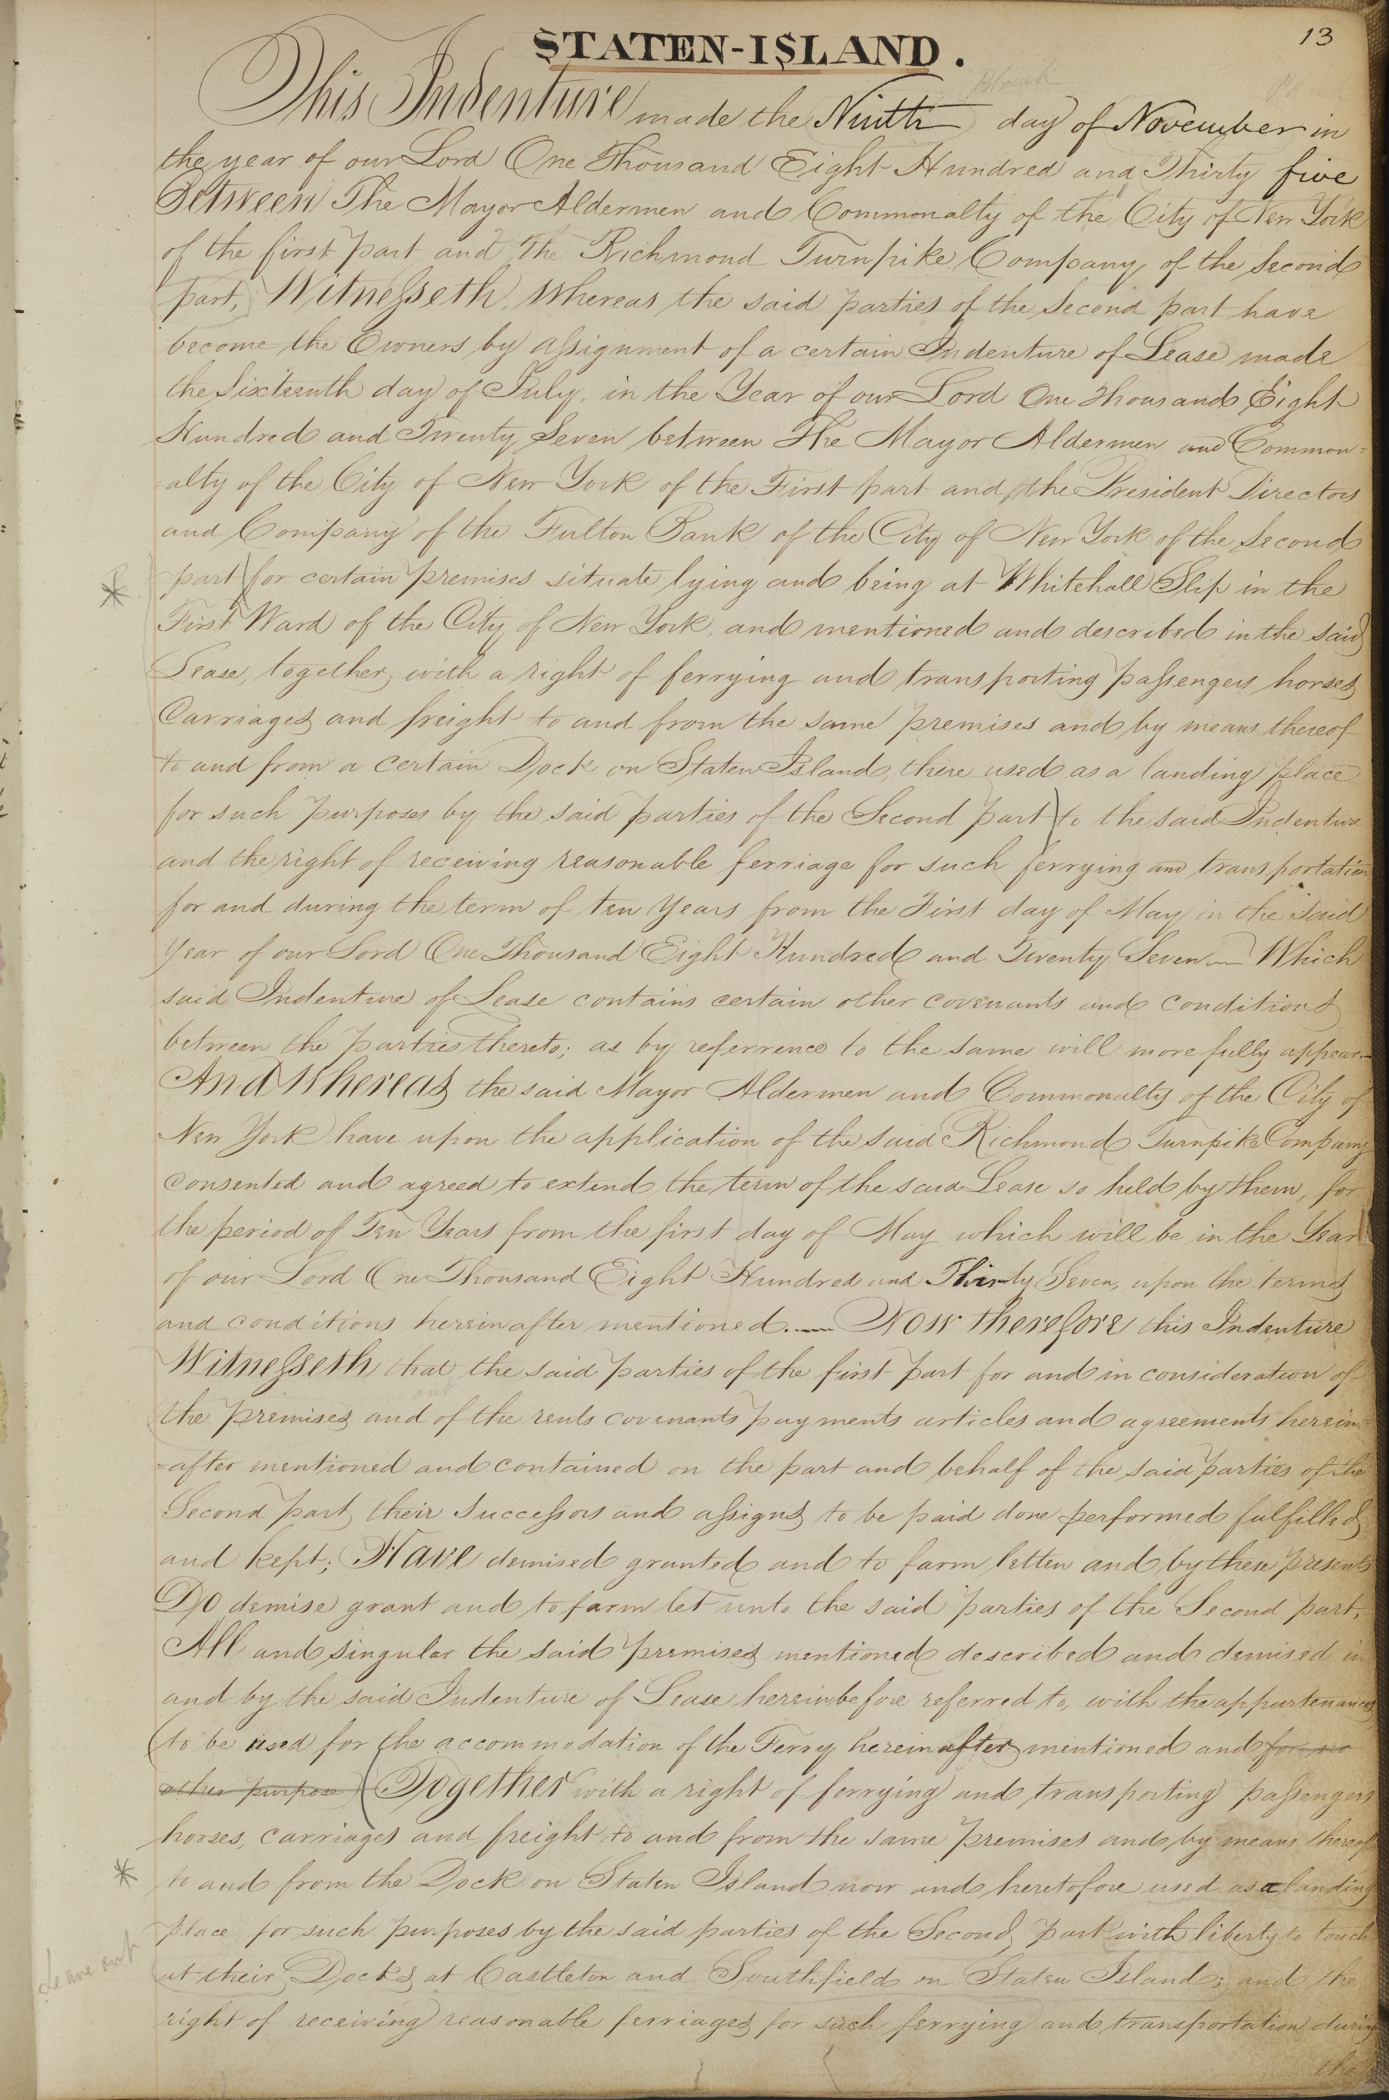 13
STATEN-ISLAND.
Blank
This Indenture made the Ninth day of November in
the year of our Lord One Thousand Eight Hundred and Thirty five
Between The Mayor Aldermen and Commonalty of the City of New York
of the first part and The Richmond Turnpike Company of the Second
part, Witnesseth, Whereas the said parties of the Second part have
become the Owners by assignment of a certain Indenture of Lease made
the Sixteenth day of July, in the Year of our Lord One Thousand Eight
Hundred and Twenty Seven between The Mayor Aldermen and Common=
=alty of the City of New York of the First part and the President Directors
and Company of the Fulton Bank of the City of New York of the Second
* part (for certain premises situate lying and being at Whitehall Slip in the
First Ward of the City of New York, and mentioned and described in the said
Lease, together with a right of ferrying and transporting passengers horses
Carriages and freight to and from the same premises and by means thereof
to and from a certain Dock on Staten Island, there used as a landing place
for such purposes by the said parties of the Second part) to the said Indenture
and the right of receiving reasonable ferriage for such ferrying and transportation
for and during the term of ten Years from the First day of May in the said
Year of our Lord One Thousand Eight Hundred and Twenty Seven — Which
said Indenture of Lease contains certain other covenants and conditions
between the parties thereto; as by referrence to the same will more fully appear.—
And Whereas the said Mayor Aldermen and Commonalty of the City of
New York have upon the application of the said Richmond Turnpike Company
consented and agreed to extend the term of the said Lease so held by them, for
the period of Ten Years from the first day of May which will be in the Year
of our Lord One Thousand Eight Hundred and Thirty Seven, upon the terms
and conditions herein after mentioned.— Now therefore this Indenture
Witnesseth that the said parties of the first part for and in consideration of
the premises and of the rents covenants payments articles and agreements herein=
=after mentioned and contained on the part and behalf of the said parties of the
Second part their Successors and assigns to be paid done performed fulfilled
and kept; Have demised granted and to farm letten and by these presents
Do demise grant and to farm let unto the said parties of the Second part,
All and singular the said premises mentioned described and demised in
and by the said Indenture of Lease hereinbefore referred to, with the appurtenances
(to be used for the accommodation of the Ferry hereinafter mentioned and for no
other purpose) (Together with a right of ferrying and transporting passengers
horses, carriages and freight to and from the same premises and by means thereof
* to and from the Dock on Staten Island now and heretofore used as a landing
place for such purposes by the said parties of the Second part with liberty to touch
Leave out
at their Docks at Castleton and Southfield on Staten Island; and the
right of receiving reasonable ferriages for such ferrying and transportation during
the